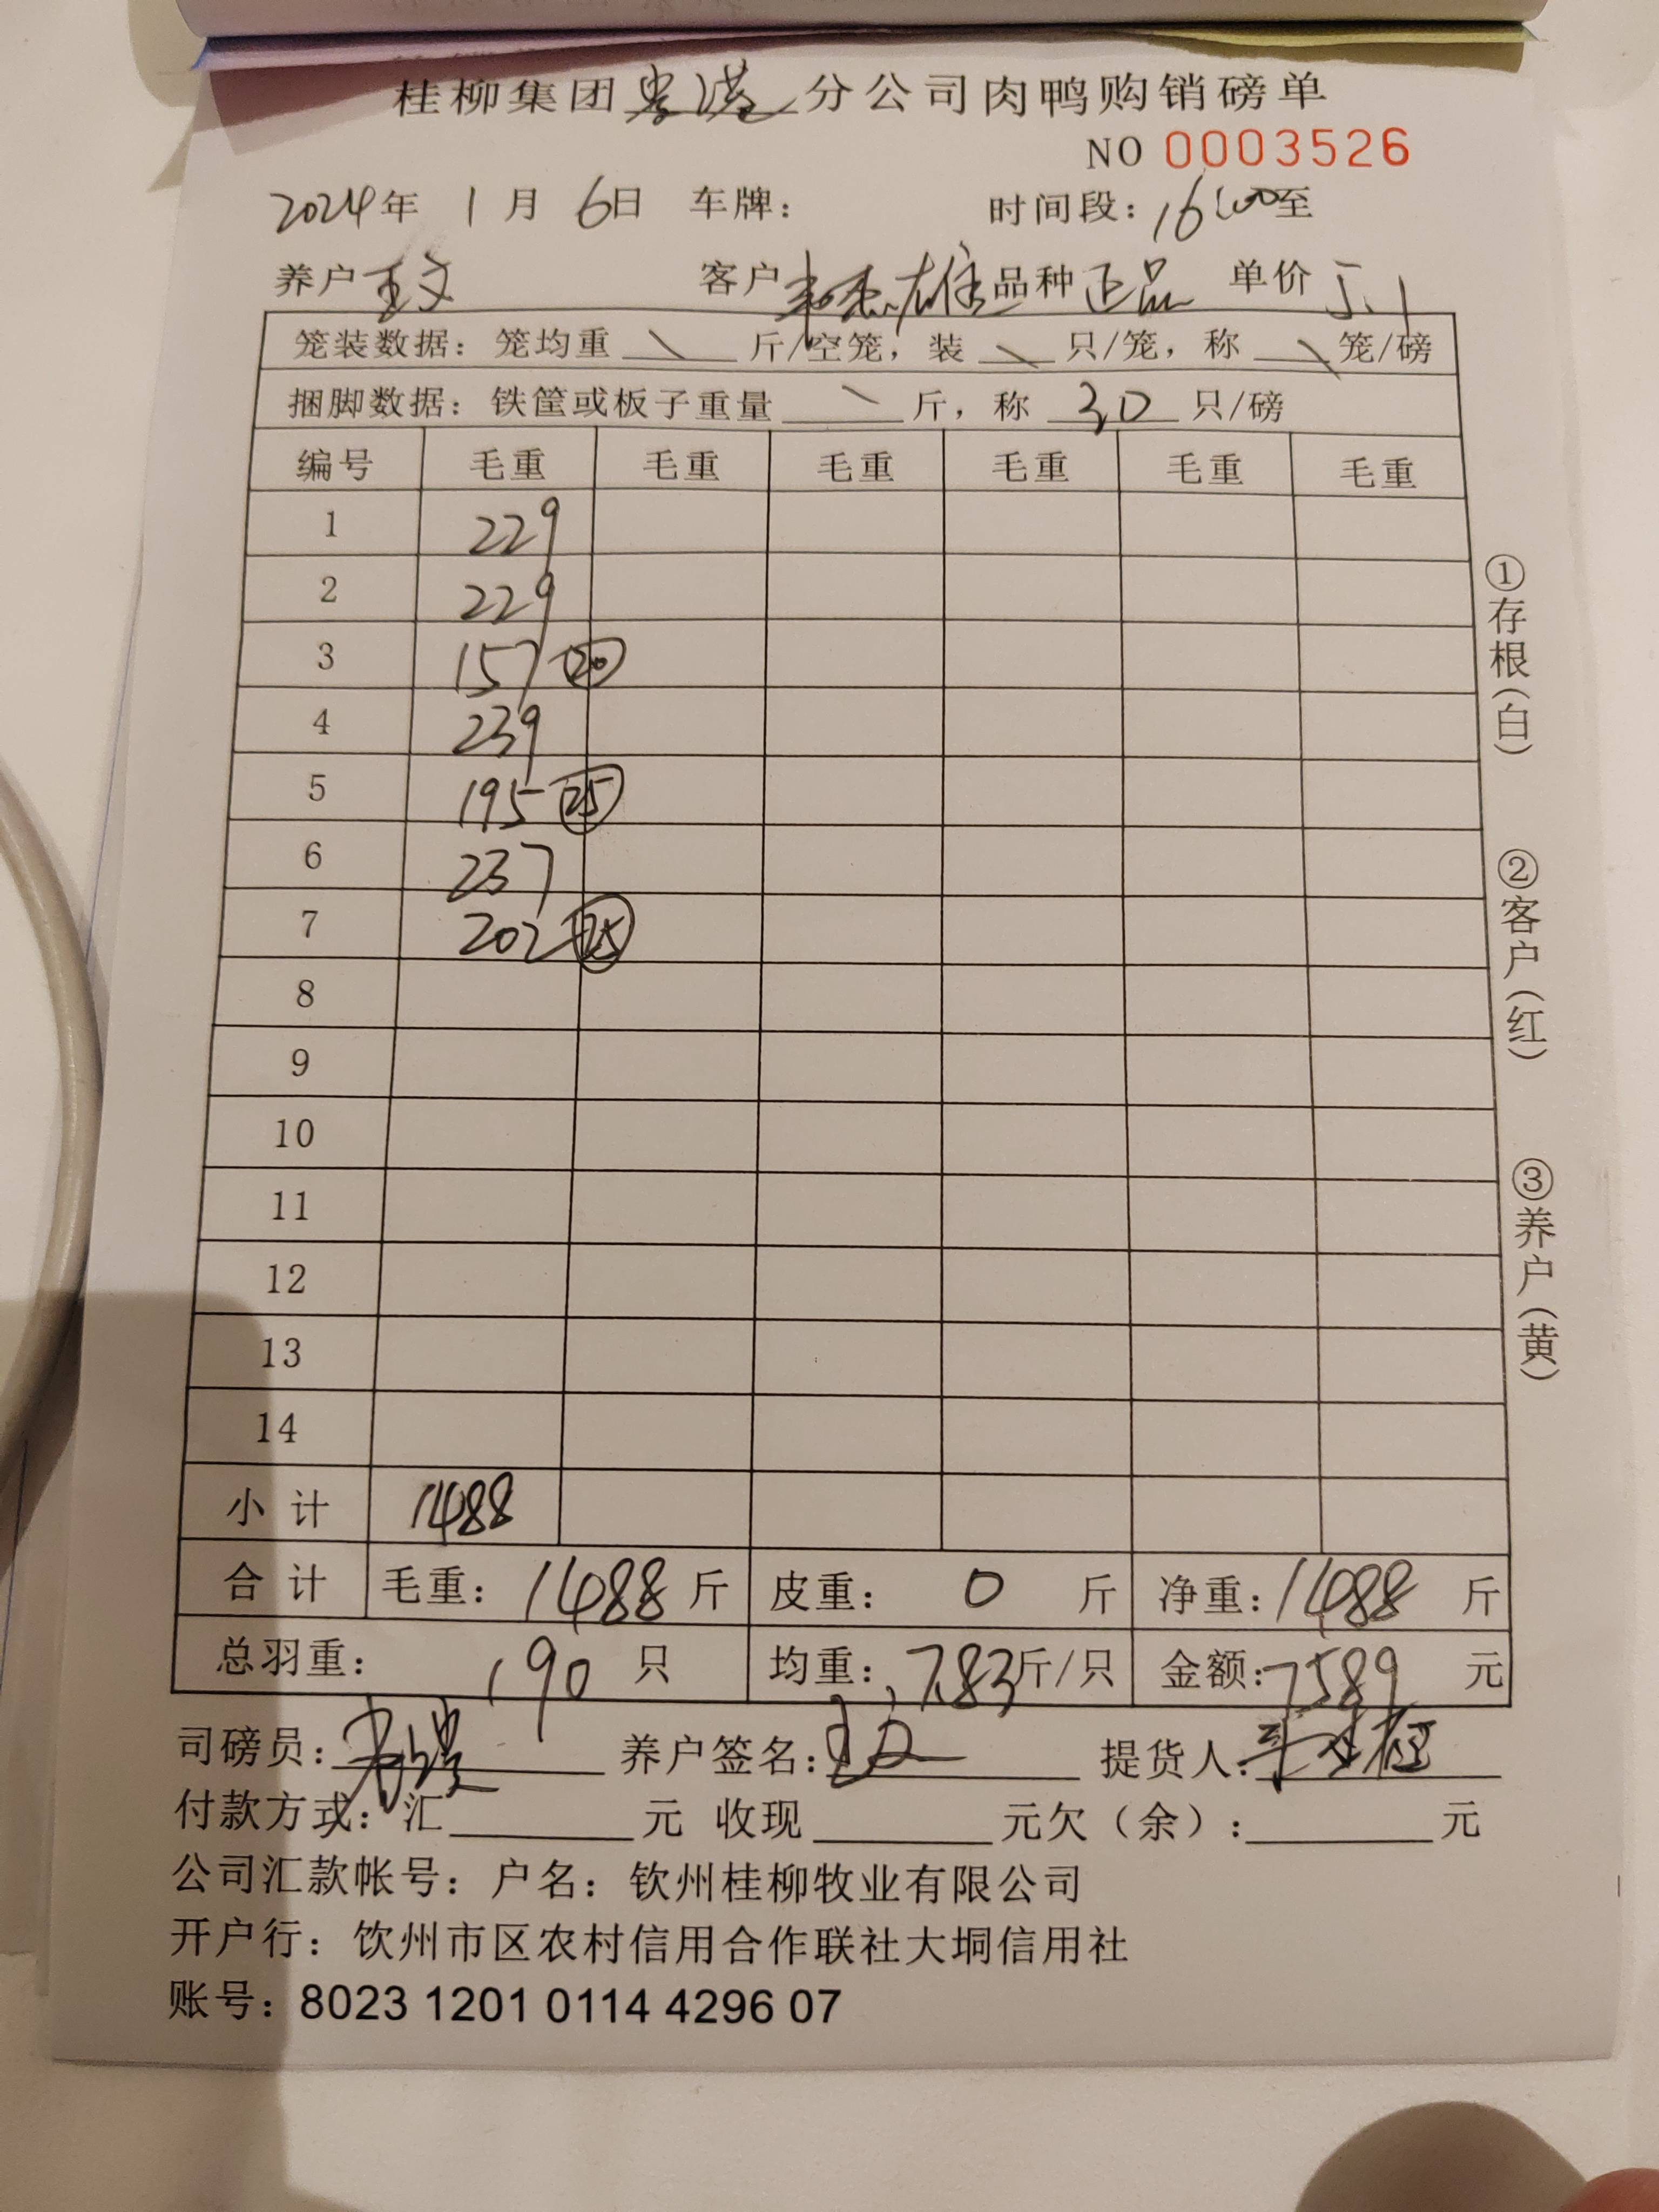 桂柳集团贵港分公司肉鸭购销磅单
NO 0003526
2024年 1月 6日 车牌： 时间段：16:00至
养户 王文 客户 品种 正品 单价 5.1
笼装数据：笼均重 \ 斤/空笼，装 \ 只/笼，称 \ 笼/磅
捆脚数据：铁筐或板子重量 \ 斤，称 30 只/磅
编号 毛重 毛重 毛重 毛重 毛重 毛重
1 229
2 229
3 157 20
4 239
5 195 25
6 237
7 202 25
8
9
10
11
12
13
14
小计 1488
合计 毛重：1488斤 皮重：0斤 净重：1488斤
总羽重：190只 均重：7.83斤/只 金额：7589元
司磅员： 养户签名：王文 提货人：
付款方式：汇 元 收现 元欠（余）： 元
公司汇款帐号：户名：钦州桂柳牧业有限公司
开户行：饮州市区农村信用合作联社大垌信用社
账号：8023 1201 0114 4296 07
①存根(白)
②客户(红)
③养户(黄)